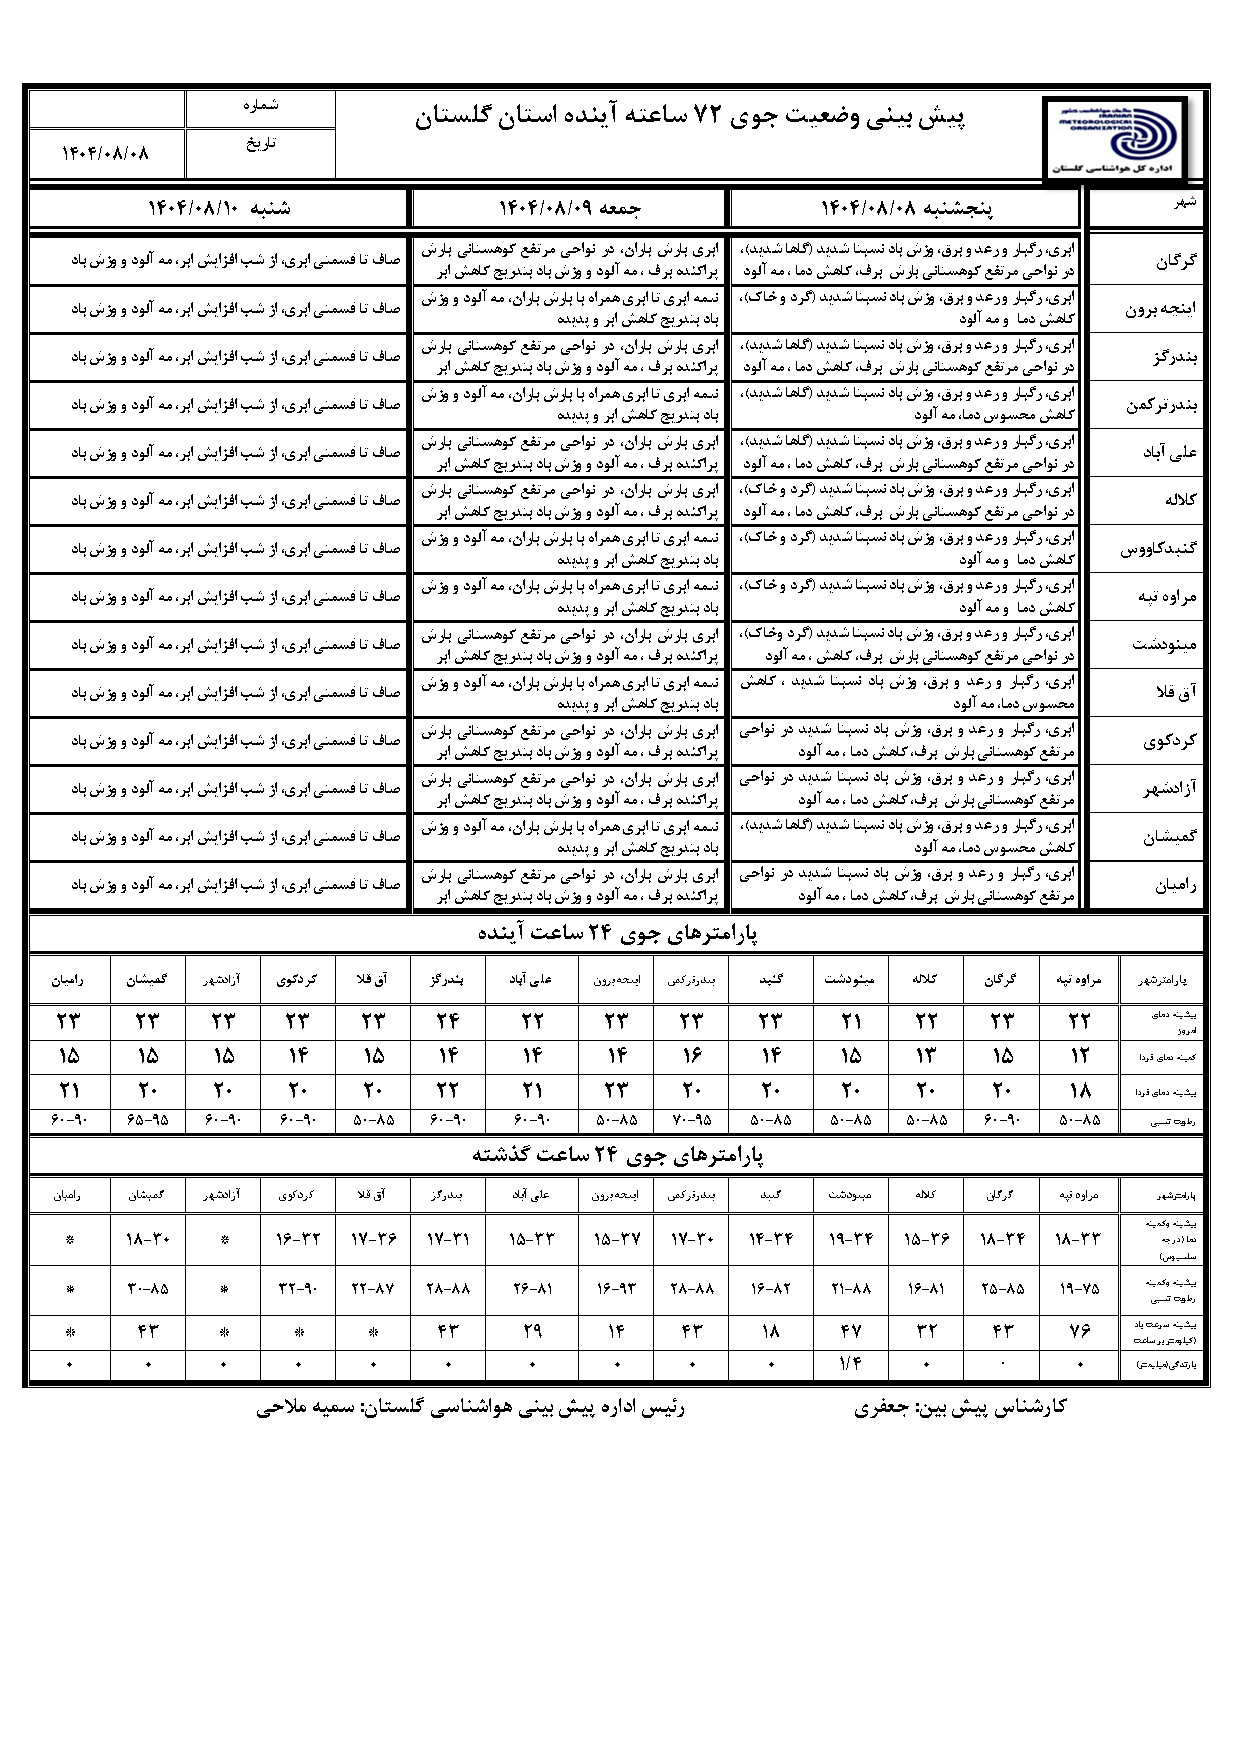 سازمان هواشناسی کشور
IRANIAN
METEOROLOGICAL
ORGANIZATION
اداره کل هواشناسی گلستان
پیش بینی وضعیت جوی ۷۲ ساعته آینده استان گلستان
شماره
تاریخ ۱۴۰۴/۰۸/۰۸
شهر پنجشنبه ۱۴۰۴/۰۸/۰۸ جمعه ۱۴۰۴/۰۸/۰۹ شنبه ۱۴۰۴/۰۸/۱۰
گرگان
ابری، رگبار و رعد و برق، وزش باد نسبتا شدید (گاها شدید)،
در نواحی مرتفع کوهستانی بارش برف، کاهش دما ، مه آلود
ابری بارش باران، در نواحی مرتفع کوهستانی بارش
پراکنده برف ، مه آلود و وزش باد بتدریج کاهش ابر
صاف تا قسمتی ابری، از شب افزایش ابر، مه آلود و وزش باد
اینچه برون
ابری، رگبار و رعد و برق، وزش باد نسبتا شدید (گرد و خاک)،
کاهش دما و مه آلود
نیمه ابری تا ابری همراه با بارش باران، مه آلود و وزش
باد بتدریج کاهش ابر و پدیده
صاف تا قسمتی ابری، از شب افزایش ابر، مه آلود و وزش باد
بندرگز
ابری، رگبار و رعد و برق، وزش باد نسبتا شدید (گاها شدید)،
در نواحی مرتفع کوهستانی بارش برف، کاهش دما ، مه آلود
ابری بارش باران، در نواحی مرتفع کوهستانی بارش
پراکنده برف ، مه آلود و وزش باد بتدریج کاهش ابر
صاف تا قسمتی ابری، از شب افزایش ابر، مه آلود و وزش باد
بندرترکمن
ابری، رگبار و رعد و برق، وزش باد نسبتا شدید (گاها شدید)،
کاهش محسوس دما، مه آلود
نیمه ابری تا ابری همراه با بارش باران، مه آلود و وزش
باد بتدریج کاهش ابر و پدیده
صاف تا قسمتی ابری، از شب افزایش ابر، مه آلود و وزش باد
علی آباد
ابری، رگبار و رعد و برق، وزش باد نسبتا شدید (گاها شدید)،
در نواحی مرتفع کوهستانی بارش برف، کاهش دما ، مه آلود
ابری بارش باران، در نواحی مرتفع کوهستانی بارش
پراکنده برف ، مه آلود و وزش باد بتدریج کاهش ابر
صاف تا قسمتی ابری، از شب افزایش ابر، مه آلود و وزش باد
کلاله
ابری، رگبار و رعد و برق، وزش باد نسبتا شدید (گرد و خاک)،
در نواحی مرتفع کوهستانی بارش برف، کاهش دما ، مه آلود
ابری بارش باران، در نواحی مرتفع کوهستانی بارش
پراکنده برف ، مه آلود و وزش باد بتدریج کاهش ابر
صاف تا قسمتی ابری، از شب افزایش ابر، مه آلود و وزش باد
گنبدکاووس
ابری، رگبار و رعد و برق، وزش باد نسبتا شدید (گرد و خاک)،
کاهش دما و مه آلود
نیمه ابری تا ابری همراه با بارش باران، مه آلود و وزش
باد بتدریج کاهش ابر و پدیده
صاف تا قسمتی ابری، از شب افزایش ابر، مه آلود و وزش باد
مراوه تپه
ابری، رگبار و رعد و برق، وزش باد نسبتا شدید (گرد و خاک)،
کاهش دما و مه آلود
نیمه ابری تا ابری همراه با بارش باران، مه آلود و وزش
باد بتدریج کاهش ابر و پدیده
صاف تا قسمتی ابری، از شب افزایش ابر، مه آلود و وزش باد
مینودشت
ابری، رگبار و رعد و برق، وزش باد نسبتا شدید (گرد وخاک)،
در نواحی مرتفع کوهستانی بارش برف، کاهش ، مه آلود
ابری بارش باران، در نواحی مرتفع کوهستانی بارش
پراکنده برف ، مه آلود و وزش باد بتدریج کاهش ابر
صاف تا قسمتی ابری، از شب افزایش ابر، مه آلود و وزش باد
آق قلا
ابری، رگبار و رعد و برق، وزش باد نسبتا شدید ، کاهش
محسوس دما، مه آلود
نیمه ابری تا ابری همراه با بارش باران، مه آلود و وزش
باد بتدریج کاهش ابر و پدیده
صاف تا قسمتی ابری، از شب افزایش ابر، مه آلود و وزش باد
کردکوی
ابری، رگبار و رعد و برق، وزش باد نسبتا شدید در نواحی
مرتفع کوهستانی بارش برف، کاهش دما ، مه آلود
ابری بارش باران، در نواحی مرتفع کوهستانی بارش
پراکنده برف ، مه آلود و وزش باد بتدریج کاهش ابر
صاف تا قسمتی ابری، از شب افزایش ابر، مه آلود و وزش باد
آزادشهر
ابری، رگبار و رعد و برق، وزش باد نسبتا شدید در نواحی
مرتفع کوهستانی بارش برف، کاهش دما ، مه آلود
ابری بارش باران، در نواحی مرتفع کوهستانی بارش
پراکنده برف ، مه آلود و وزش باد بتدریج کاهش ابر
صاف تا قسمتی ابری، از شب افزایش ابر، مه آلود و وزش باد
گمیشان
ابری، رگبار و رعد و برق، وزش باد نسبتا شدید (گاها شدید)،
کاهش محسوس دما، مه آلود
نیمه ابری تا ابری همراه با بارش باران، مه آلود و وزش
باد بتدریج کاهش ابر و پدیده
صاف تا قسمتی ابری، از شب افزایش ابر، مه آلود و وزش باد
رامیان
ابری، رگبار و رعد و برق، وزش باد نسبتا شدید در نواحی
مرتفع کوهستانی بارش برف، کاهش دما ، مه آلود
ابری بارش باران، در نواحی مرتفع کوهستانی بارش
پراکنده برف ، مه آلود و وزش باد بتدریج کاهش ابر
صاف تا قسمتی ابری، از شب افزایش ابر، مه آلود و وزش باد
پارامترهای جوی ۲۴ ساعت آینده
پارامترشهر مراوه تپه گرگان کلاله مینودشت گنبد بندرترکمن اینچه برون علی آباد بندرگز آق قلا کردکوی آزادشهر گمیشان رامیان
بیشینه دمای امروز ۲۲ ۲۳ ۲۲ ۲۱ ۲۳ ۲۳ ۲۳ ۲۲ ۲۴ ۲۳ ۲۳ ۲۳ ۲۳ ۲۳
کمینه دمای فردا ۱۲ ۱۵ ۱۳ ۱۵ ۱۴ ۱۶ ۱۴ ۱۴ ۱۴ ۱۵ ۱۴ ۱۵ ۱۵ ۱۵
بیشینه دمای فردا ۱۸ ۲۰ ۲۰ ۲۰ ۲۰ ۲۰ ۲۳ ۲۱ ۲۲ ۲۰ ۲۰ ۲۰ ۲۰ ۲۱
رطوبت نسبی ۵۰-۸۵ ۶۰-۹۰ ۵۰-۸۵ ۵۰-۸۵ ۵۰-۸۵ ۷۰-۹۵ ۵۰-۸۵ ۶۰-۹۰ ۶۰-۹۰ ۵۰-۸۵ ۶۰-۹۰ ۶۰-۹۰ ۶۵-۹۵ ۶۰-۹۰
پارامترهای جوی ۲۴ ساعت گذشته
پارامترشهر مراوه تپه گرگان کلاله مینودشت گنبد بندرترکمن اینچه برون علی آباد بندرگز آق قلا کردکوی آزادشهر گمیشان رامیان
بیشینه وکمینه دما (درجه سلسیوس) ۱۸-۳۳ ۱۸-۳۴ ۱۵-۳۶ ۱۹-۳۴ ۱۴-۳۴ ۱۷-۳۰ ۱۵-۳۷ ۱۵-۳۳ ۱۷-۳۱ ۱۷-۳۶ ۱۶-۳۲ * ۱۸-۳۰ *
بیشینه وکمینه رطوبت نسبی ۱۹-۷۵ ۲۵-۸۵ ۱۶-۸۱ ۲۱-۸۸ ۱۶-۸۲ ۲۸-۸۸ ۱۶-۹۳ ۲۶-۸۱ ۲۸-۸۸ ۲۲-۸۷ ۳۲-۹۰ * ۳۰-۸۵ *
بیشینه سرعت باد (کیلومتر بر ساعت) ۷۶ ۴۳ ۳۲ ۴۷ ۱۸ ۴۳ ۱۴ ۲۹ ۴۳ * * * ۴۳ *
بارندگی(میلیمتر) ۰ ۰ ۰ ۱/۴ ۰ ۰ ۰ ۰ ۰ ۰ ۰ ۰ ۰ ۰
کارشناس پیش بین: جعفری رئیس اداره پیش بینی هواشناسی گلستان: سمیه ملاحی